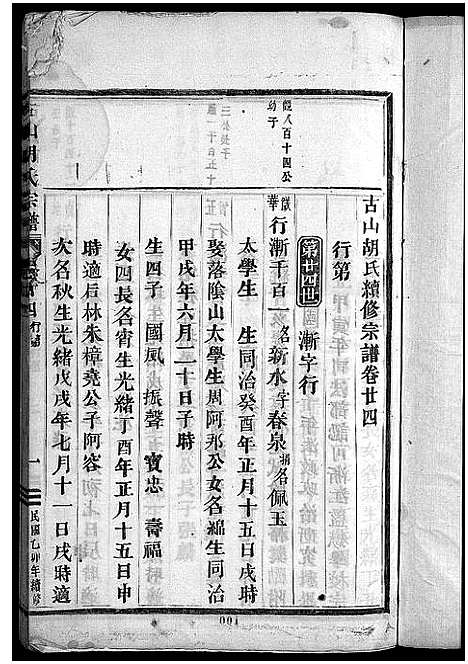 古山胡氏續修宗譜卷廿四
行第
第廿四世 漸字行
饒八百十四公
幼子
徵華 行漸千百一 名新水 字春泉 捐名佩玉
太學生 生同治癸酉年正月十五日戌時
娶落陰山太學生周阿那公女名綿生同治
甲戌年六月二十日子時
生四子 國風 振聲 寶忠 壽福
女四長名宵生光緒丁酉年正月十五日申
時適后林朱樟堯公子阿容
次名秋生光緒戊戌年七月十一日戌時適
古山胡氏宗譜
卷廿四 行第
一
民國乙卯年續修
001